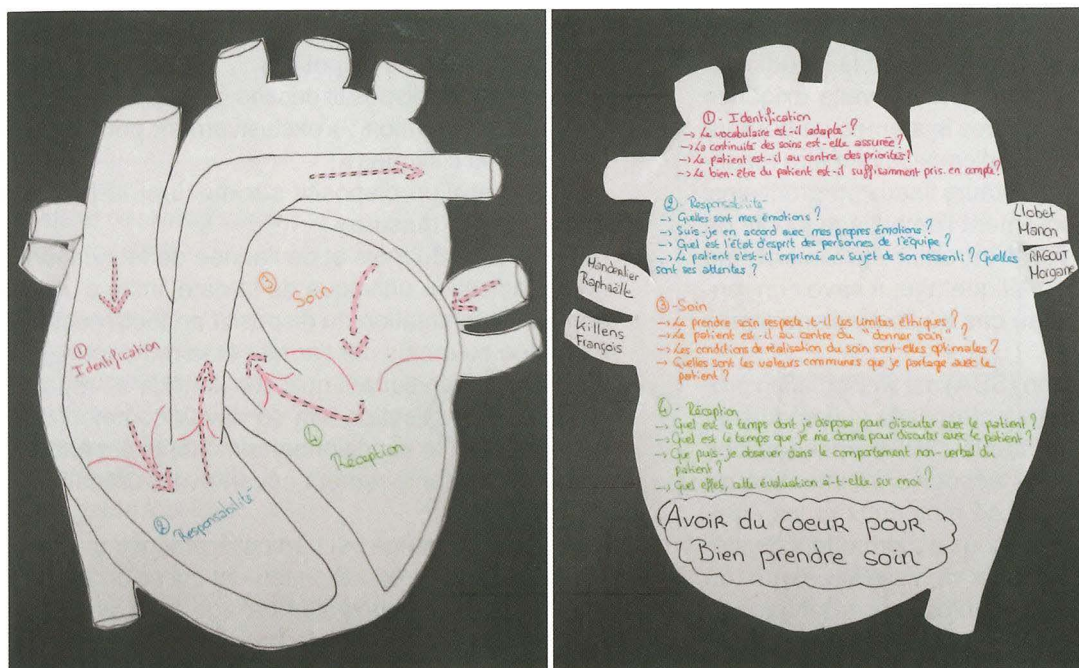 ① Identification
② Responsabilité
③ Soin
④ Réception
① - Identification
→ Le vocabulaire est-il adapté ?
→ La continuité des soins est-elle assurée ?
→ Le patient est-il au centre des priorités ?
→ Le bien-être du patient est-il suffisamment pris en compte ?
② - Responsabilité
→ Quelles sont mes émotions ?
→ Suis-je en accord avec mes propres émotions ?
→ Quel est l'état d'esprit des personnes de l'équipe ?
→ Le patient s'est-il exprimé au sujet de son ressenti ? Quelles
sont ses attentes ?
③ - Soin
→ Le prendre soin respecte-t-il les limites éthiques ?
→ Le patient est-il au centre du "donner soin" ?
→ Les conditions de réalisation du soin sont-elles optimales ?
→ Quelles sont les valeurs communes que je partage avec le
patient ?
④ - Réception
→ Quel est le temps dont je dispose pour discuter avec le patient ?
→ Quel est le temps que je me donne pour discuter avec le patient ?
→ Que puis-je observer dans le comportement non-verbal du
patient ?
→ Quel effet, cette évaluation à-t-elle sur moi ?
Avoir du coeur pour
Bien prendre soin
Raphaëlle
Killens
François
Llobet
Manon
RAGOUT
Morgane